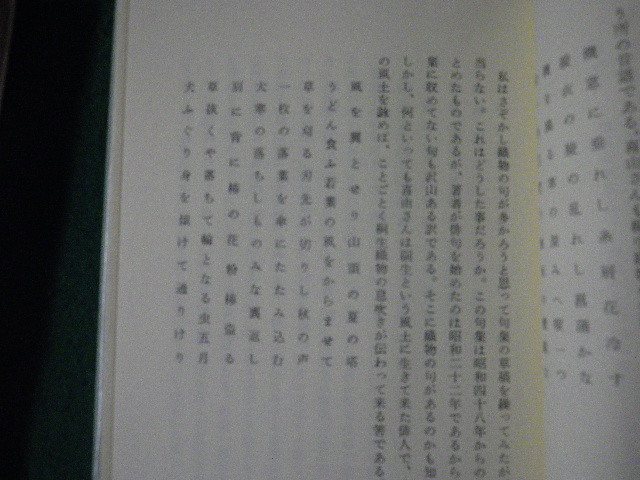 う所の
である。
私はさぞかし織物の句が多かろうと思って句集の草稿を繰ってみたが
当らない。これはどうした事だろうか。この句集は昭和四十八年からの
とめたものであるが、著者が俳句を始めたのは昭和二十二年であるから
集に収めてない句も沢山ある訳である。そこに織物の句があるのかも知
しかし、何といっても喜由さんは桐生という風土に生きて来た俳人で、
の風土を詠めば、ことごとく桐生織物の息吹きが伝わって来る筈である
風を翼とせり山頂の夏の塔
うどん食ふ若葉の風をからませて
草を刈る刃先が切りし秋の声
一枚の落葉を傘にたたみ込む
大寒の落ちしものみな裏返し
肩に背に柿の花粉柿盗る
草抜くや落ちて輪となる虫五月
犬ふぐり身を傾けて通りけり